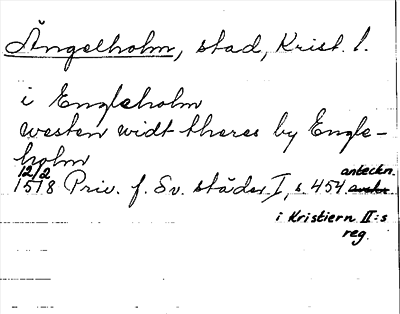 Ängelholm, stad, Krist. l.
i Engleholm
westen widt theres by Engle-
holm
12/2
1518 Priv. f. Sv. städer I, s. 454 anteckn.
i Kristiern II:s
reg.